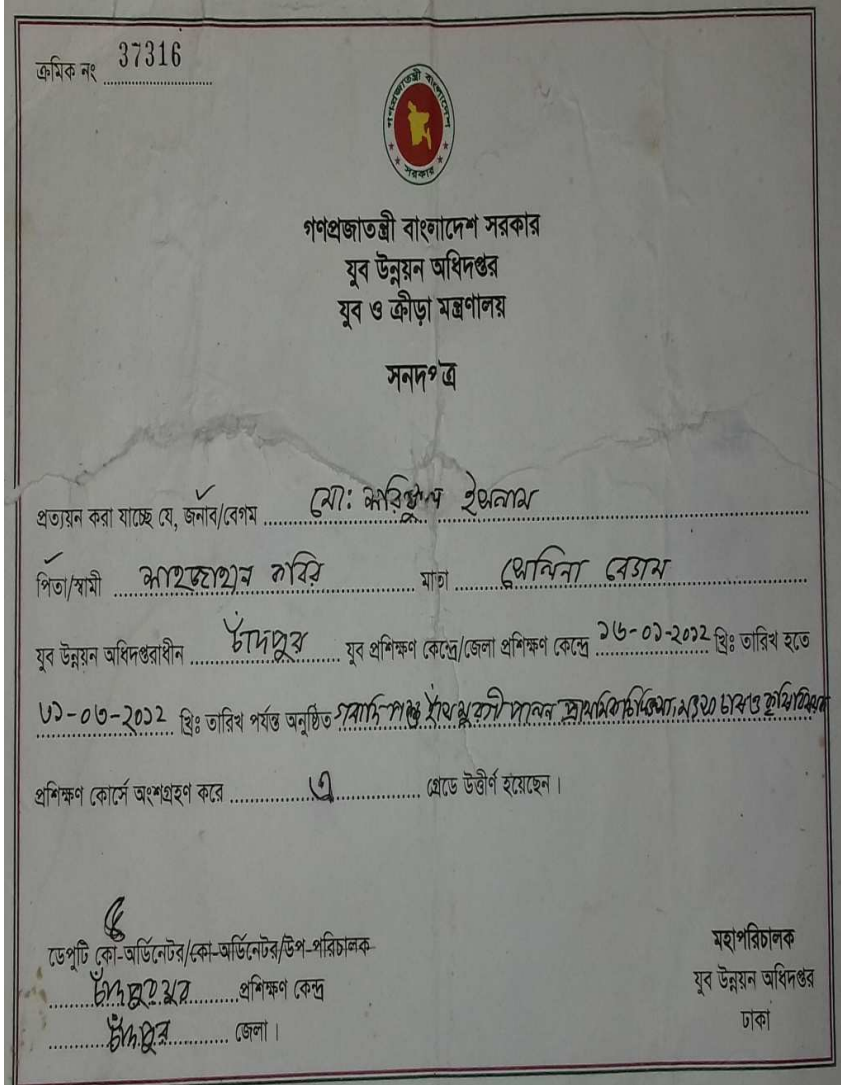 ক্রমিক নং 37316
গণপ্রজাতন্ত্রী বাংলাদেশ
সরকার
গণপ্রজাতন্ত্রী বাংলাদেশ সরকার
যুব উন্নয়ন অধিদপ্তর
যুব ও ক্রীড়া মন্ত্রণালয়
সনদপত্র
প্রত্যয়ন করা যাচ্ছে যে, জনাব/বেগম মো: ইসলাম
পিতা/স্বামী শাহজাহান কবির মাতা সেলিনা বেগম
যুব উন্নয়ন অধিদপ্তরাধীন চাঁদপুর যুব প্রশিক্ষণ কেন্দ্রে/জেলা প্রশিক্ষণ কেন্দ্রে ১৬-০১-২০১২ খ্রিঃ তারিখ হতে
৩১-০৩-২০১২ খ্রিঃ তারিখ পর্যন্ত অনুষ্ঠিত গবাদি পশু হাঁস মুরগী পালন প্রাথমিক চিকিৎসা, মৎস্য চাষ ও কৃষি বিষয়ক
প্রশিক্ষণ কোর্সে অংশগ্রহণ করে এ গ্রেডে উত্তীর্ণ হয়েছেন।
ডেপুটি কো-অর্ডিনেটর/কো-অর্ডিনেটর/উপ-পরিচালক
প্রশিক্ষণ কেন্দ্র
চাঁদপুর জেলা।
মহাপরিচালক
যুব উন্নয়ন অধিদপ্তর
ঢাকা